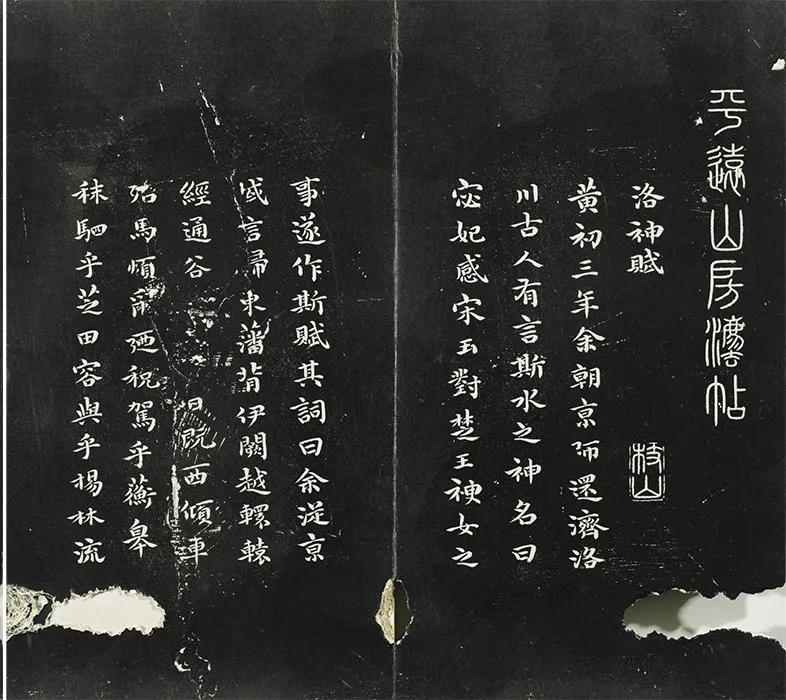 平遠山房灋帖
洛神賦
枝山
黃初三年余朝京師還濟洛
川古人有言斯水之神名曰
宓妃感宋玉對楚王神女之
事遂作斯賦其詞曰余從京
域言歸東藩背伊闕越轘轅
經通谷日既西傾車
殆馬煩爾迺稅駕乎蘅皋
秣駟乎芝田容與乎楊林流